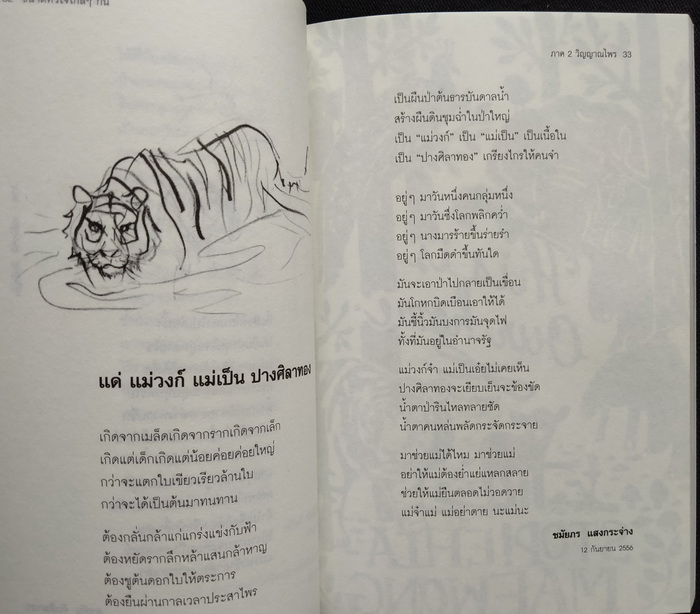 แด่ แม่วงก์ แม่เป็น ปางศิลาทอง
เกิดจากเมล็ดเกิดจากรากเกิดจากเล็ก
เกิดแต่เด็กเกิดแต่น้อยค่อยค่อยใหญ่
กว่าจะแตกใบเขียวเรียวล้านใบ
กว่าจะได้เป็นต้นมาทนทาน
ต้องกลั่นกล้าแก่แกร่งแข่งกับฟ้า
ต้องหยัดรากลึกหล้าแสนกล้าหาญ
ต้องชูต้นดอกใบให้ตระการ
ต้องยืนผ่านกาลเวลาประสาไพร
ภาค 2 วิญญาณไพร 33
เป็นผืนป่าต้นธารบันดาลน้ำ
สร้างผืนดินชุมฉ่ำในป่าใหญ่
เป็น “แม่วงก์” เป็น “แม่เป็น” เป็นเนื้อใน
เป็น “ปางศิลาทอง” เกรียงไกรให้คนจำ
อยู่ๆ มาวันหนึ่งคนกลุ่มหนึ่ง
อยู่ๆ มาวันซึ่งโลกพลิกคว่ำ
อยู่ๆ นางมารร้ายขึ้นร่ายรำ
อยู่ๆ โลกมืดดำขึ้นทันใด
มันจะเอาป่าไปกลายเป็นเขื่อน
มันโกหกบิดเบือนเอาให้ได้
มันชี้นิ้วมันบงการมันจุดไฟ
ทั้งที่มันอยู่ในอำนาจรัฐ
แม่วงก์จำ แม่เป็นเอ๋ยไม่เคยเห็น
ปางศิลาทองจะเยียบเย็นจะข้องขัด
น้ำตาป่ารินไหลทลายซัด
น้ำตาคนหล่นพลัดกระจัดกระจาย
มาช่วยแม่ได้ไหม มาช่วยแม่
อย่าให้แม่ต้องย่ำแย่แหลกสลาย
ช่วยให้แม่ยืนตลอดไม่วอดวาย
แม่จ๋าแม่ แม่อย่าตาย นะแม่นะ
ชมัยภร แสงกระจ่าง
12 กันยายน 2556